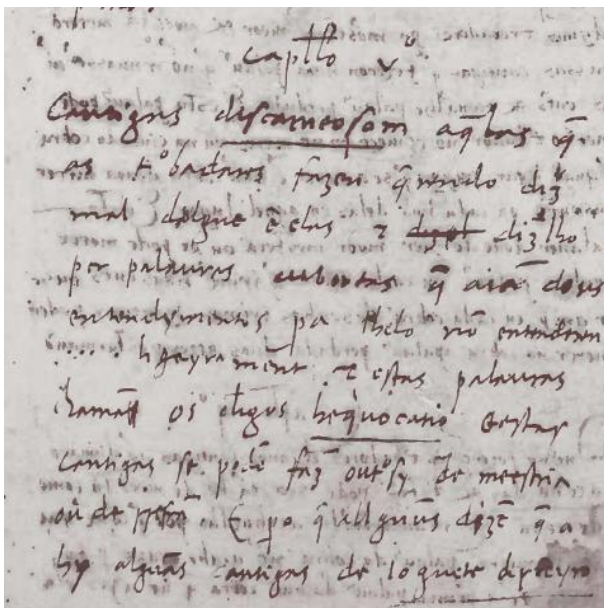 Capllo vº
Cantigas discarneo som aqllas q̄
as tºbadores fazen q̄rendo diz
mal dalgue ē elas τ dizel dizlho
per palauras cubertas q̄ aiā dous
entendymentos pa lhelo nō entenderen
.... ligeyramēt τ estas palauras
chamā os cligos hequocatio Eestas
Cantigas se podē faz outºsy de meestria
ou de rrefrē E pº q̄ allguūs dizē q̄ a
hy alguās cantigas de Joguete derteyro